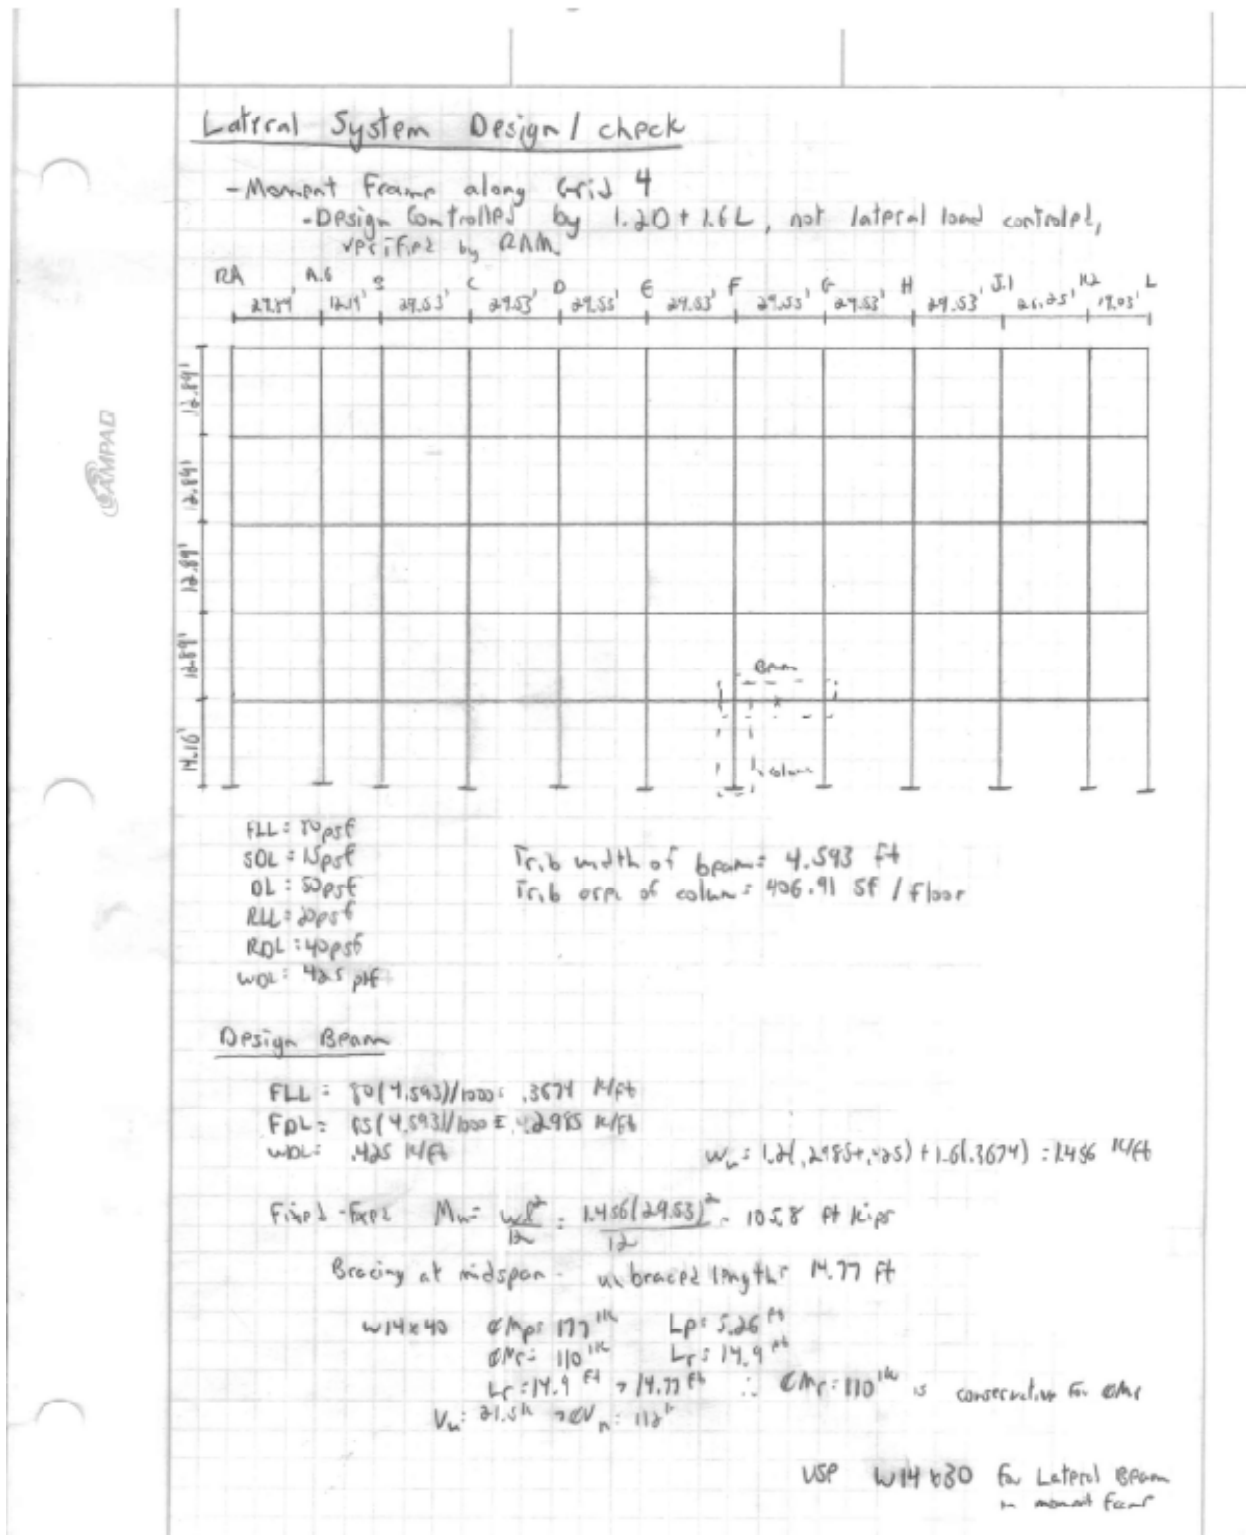 Lateral System Design / check
- Moment Frame along Grid 4
- Design Controlled by 1.2D + 1.6L, not lateral load controled,
verified by RAM.
RA A.6 C D E F G H J.1 K.2 L
29.53' 29.53' 29.53' 29.53' 29.53' 26.25'
12.89'
12.89'
12.89'
12.89'
14.16'
Beam
Column
AMPAD
FLL = 80psf
SDL = 15psf
DL = 50psf
RLL = 20psf
RDL = 40psf
WDL = 425 plf
Trib width of beam = 4.593 ft
Trib area of column = 406.91 SF / floor
Design Beam
FLL = 80(4.593)/1000 = .3674 k/ft
FDL = 65(4.593)/1000 = .2985 k/ft
WDL = .425 k/ft
Wu = 1.2(.2985+.425) + 1.6(.3674) = 1.456 k/ft
Fixed-Fixed Mu = wl²/12 = 1.456(29.53)²/12 = 105.8 ft kips
Bracing at midspan - unbraced length = 14.77 ft
W14x40 ØMp = 177 'k Lp = 5.26 ft
ØMr = 110 'k Lr = 14.9 ft
Lr = 14.9 ft > 14.77 ft ∴ ØMr = 110 'k is conservative for ØMr
Vu = 21.5k > ØVn = 112k
USE W14x30 for Lateral Beam
in moment frame